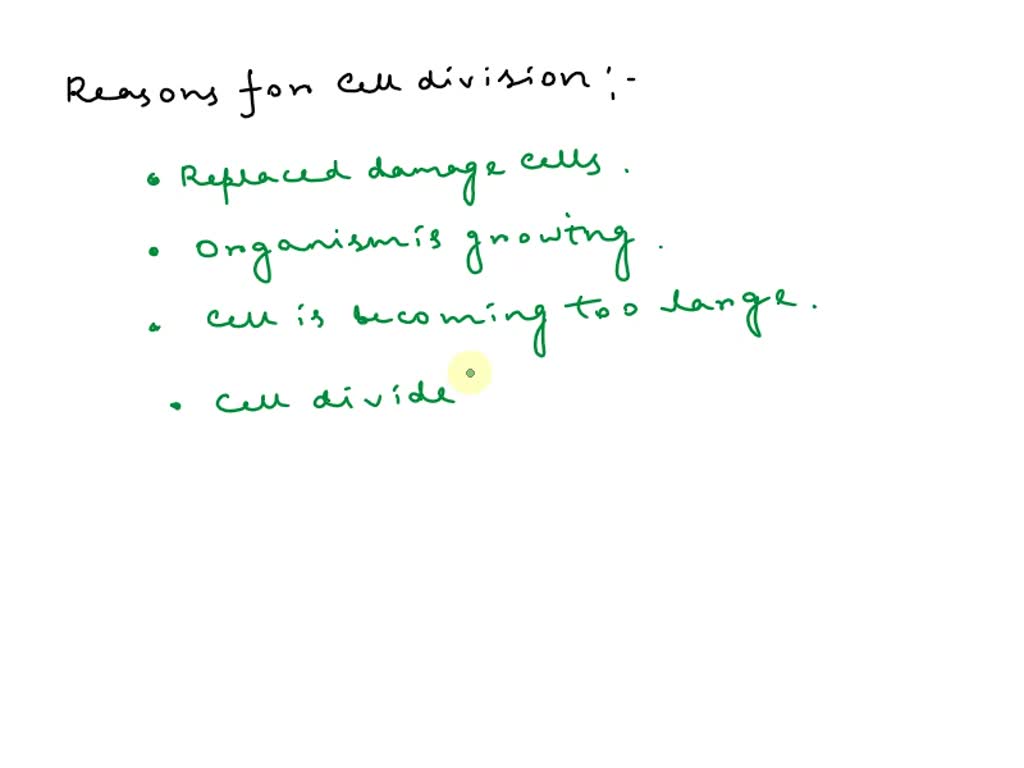 Reasons for cell division :-
• Replaced damage cells.
• Organism is growing.
• Cell is becoming too large.
• Cell divide